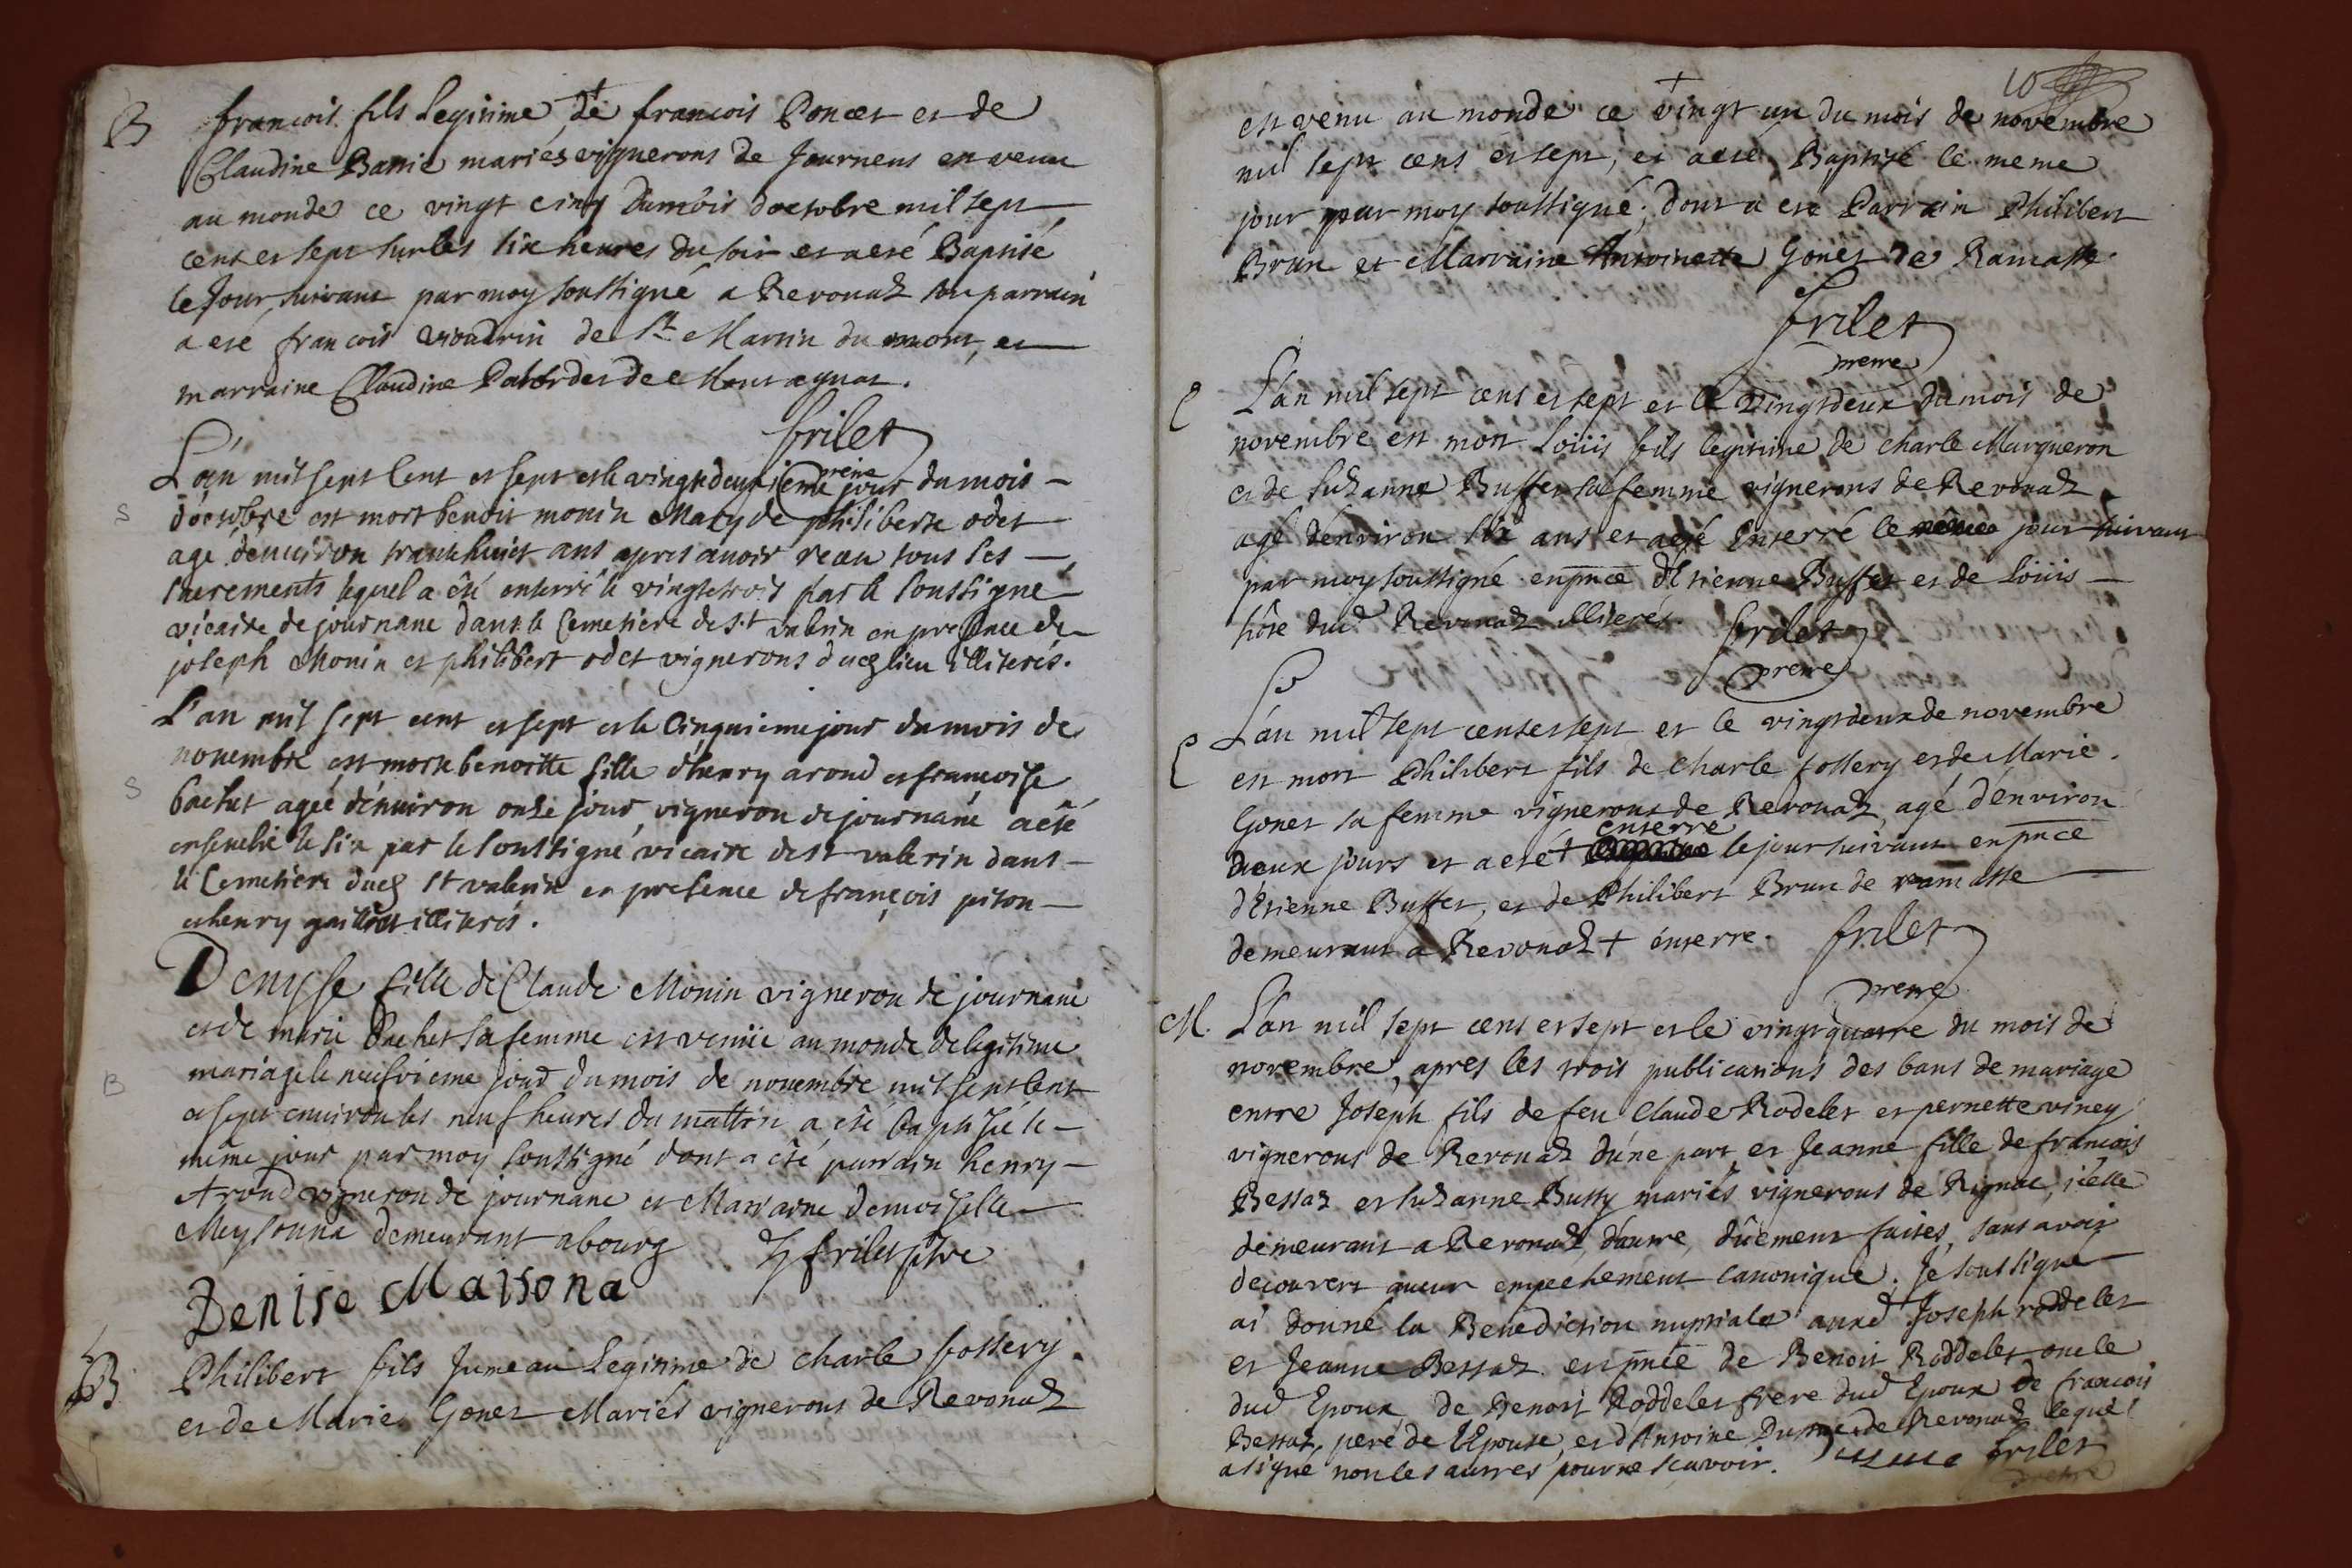 B
francois fils Legitime de francois Poncet et de
Claudine Barrie mariés vignerons de Journens est venu
au monde ce vingt cinq du mois doctobre mil sept
cens et sept sur les six heures du soir et a eté Baptisé
le Jour suivant par moy soussigné a Revonaz son parrain
a eté francois vioudrin de St Martin du mont, et
marraine Claudine de Montagnat.
frilet
pretre
L'an mil sept cent et sept et le vingtdeuxieme jour du mois
S
doctobre est mort benoit monin Mary de philiberte odet
age denuiron trante huict ans apres auoir receu tous ses
sacrements lequel a êté enterré le vingtetrois par le soussigné
vicaire de journanc dans le Cemetiere de st valerin en presence de
joseph Monin et philibert odet vignerons ducq lieu illiterés.
L'an mil sept cent et sept et le Cinquieme jour du mois de
nouembre est morte benoitte fille d'henry aroud et francoise
S
bachet agée dénuiron onze jour vigneron de journané a eté
enseueli le six par le soussigné vicaire de st valerin dans
le Cemetiere ducq st valerin en presence de françois piton
et henry illiterés.
Denysse fille de Claude Monin vigneron de journané
et de marie Bachet sa femme est venüe au monde de legitime
mariage le neufvieme jour du mois de nouembre mil sept cent
B
et sept enuiron les neuf heures du mattin a été baptisée le
même jour par moy soussigné dont a été parrain henry
Aroud vigneron de journanc et Marraine demoiselle
Meysonna demeurant a bourg frilet ptre
Denise Maisona
B
Philibert fils Jumeau Legitime de charle fossery
et de Marie Gonet Mariés vignerons de Revonaz
10
est venu au monde ce vingt un du mois de novembre
mil sept cens et sept, et a eté Baptisé le meme
jour par moy soussigné; dont a eté Parrain Philibert
Brun et Marraine Antoinette Gonet de Ramasse.
frilet
pretre
L'an mil sept cens et sept et le vingtdeux du mois de
novembre est mort Loüis fils legitime de charle Marqueron
et de suzanne Buffet sa femme vignerons de Revonaz
agé denviron six ans et a eté Enterré le jour suivant
par moy soussigné en pnce d'Etienne Buffet et de Loüis
hôte dud Revonaz illiterés.
frilet
pretre
L'an mil sept cens et sept et le vingtdeux de novembre
est mort Philibert fils de charle fossery et de Marie
Gonet sa femme vignerons de Revonaz agé d'environ
enterre
deux jours et a eté + le jour suivant en pnce
d'Etienne Buffet, et de Philibert Brun de ramasse
demeurant a Revonaz + énterre.
frilet
pretre
M. L'an mil sept cens et sept et le vingt quatre du mois de
novembre, apres les trois publications des bans de mariage
entre Joseph fils de feu Claude Rodelet et pernette viney
vignerons de Revonaz d'une part et Jeanne fille de francois
Bessaz et suzanne Bussy mariés vignerons de Rignac, icelle
demeurant a Revonaz, d'autre, dûement faites, sans avoir
decouvert aucun empechement canonique. Je soussigné
ai donné la Benediction nuptiale auxd Joseph roddelet
et Jeanne Bessaz en pnce de Benoit Roddelet oncle
dud Epoux de Benoit Roddelet frere dud Epoux de francois
Bessaz, pere de l'Epouse, et d'Antoine de Revonaz lequel
a signé non les autres pour ne scavoir. frilet
pretre